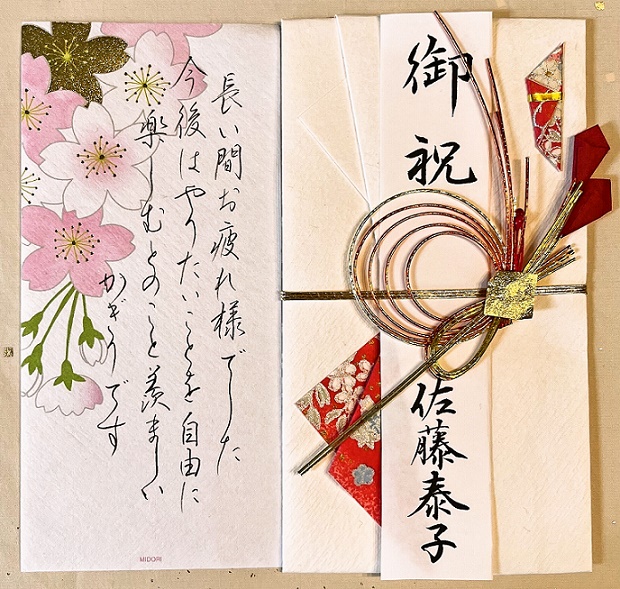 長い間お疲れ様でした
今後はやりたいことを自由に
楽しむとのこと羨ましい
かぎりです
MIDORI
御祝
佐藤泰子